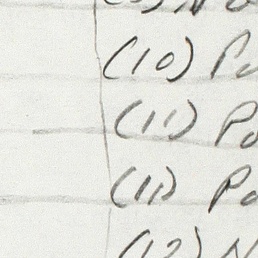 (10) Pa
(11) Pa
(11) Pa
(12) N